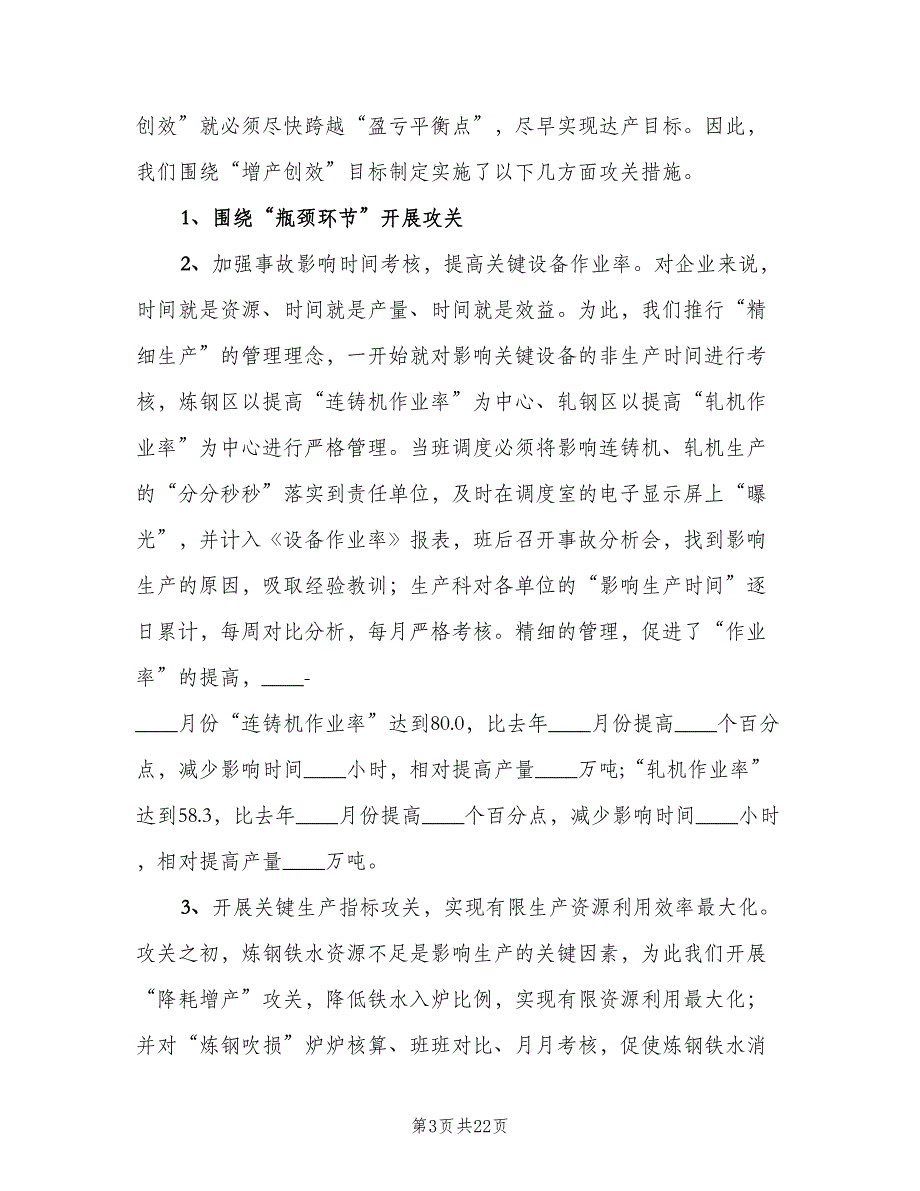 创效”就必须尽快跨越“盈亏平衡点”，尽早实现达产目标。因此，
我们围绕“增产创效”目标制定实施了以下几方面攻关措施。
1、围绕“瓶颈环节”开展攻关
2、加强事故影响时间考核，提高关键设备作业率。对企业来说，
时间就是资源、时间就是产量、时间就是效益。为此，我们推行“精
细生产”的管理理念，一开始就对影响关键设备的非生产时间进行考
核，炼钢区以提高“连铸机作业率”为中心、轧钢区以提高“轧机作
业率”为中心进行严格管理。当班调度必须将影响连铸机、轧机生产
的“分分秒秒”落实到责任单位，及时在调度室的电子显示屏上“曝
光”，并计入《设备作业率》报表，班后召开事故分析会，找到影响
生产的原因，吸取经验教训；生产科对各单位的“影响生产时间”逐
日累计，每周对比分析，每月严格考核。精细的管理，促进了“作业
率”的提高，____-
____月份“连铸机作业率”达到80.0，比去年____月份提高____个百分
点，减少影响时间____小时，相对提高产量____万吨；“轧机作业率”
达到58.3，比去年____月份提高____个百分点，减少影响时间____小时
，相对提高产量____万吨。
3、开展关键生产指标攻关，实现有限生产资源利用效率最大化。
攻关之初，炼钢铁水资源不足是影响生产的关键因素，为此我们开展
“降耗增产”攻关，降低铁水入炉比例，实现有限资源利用最大化；
并对“炼钢吹损”炉炉核算、班班对比、月月考核，促使炼钢铁水消
第3页共22页